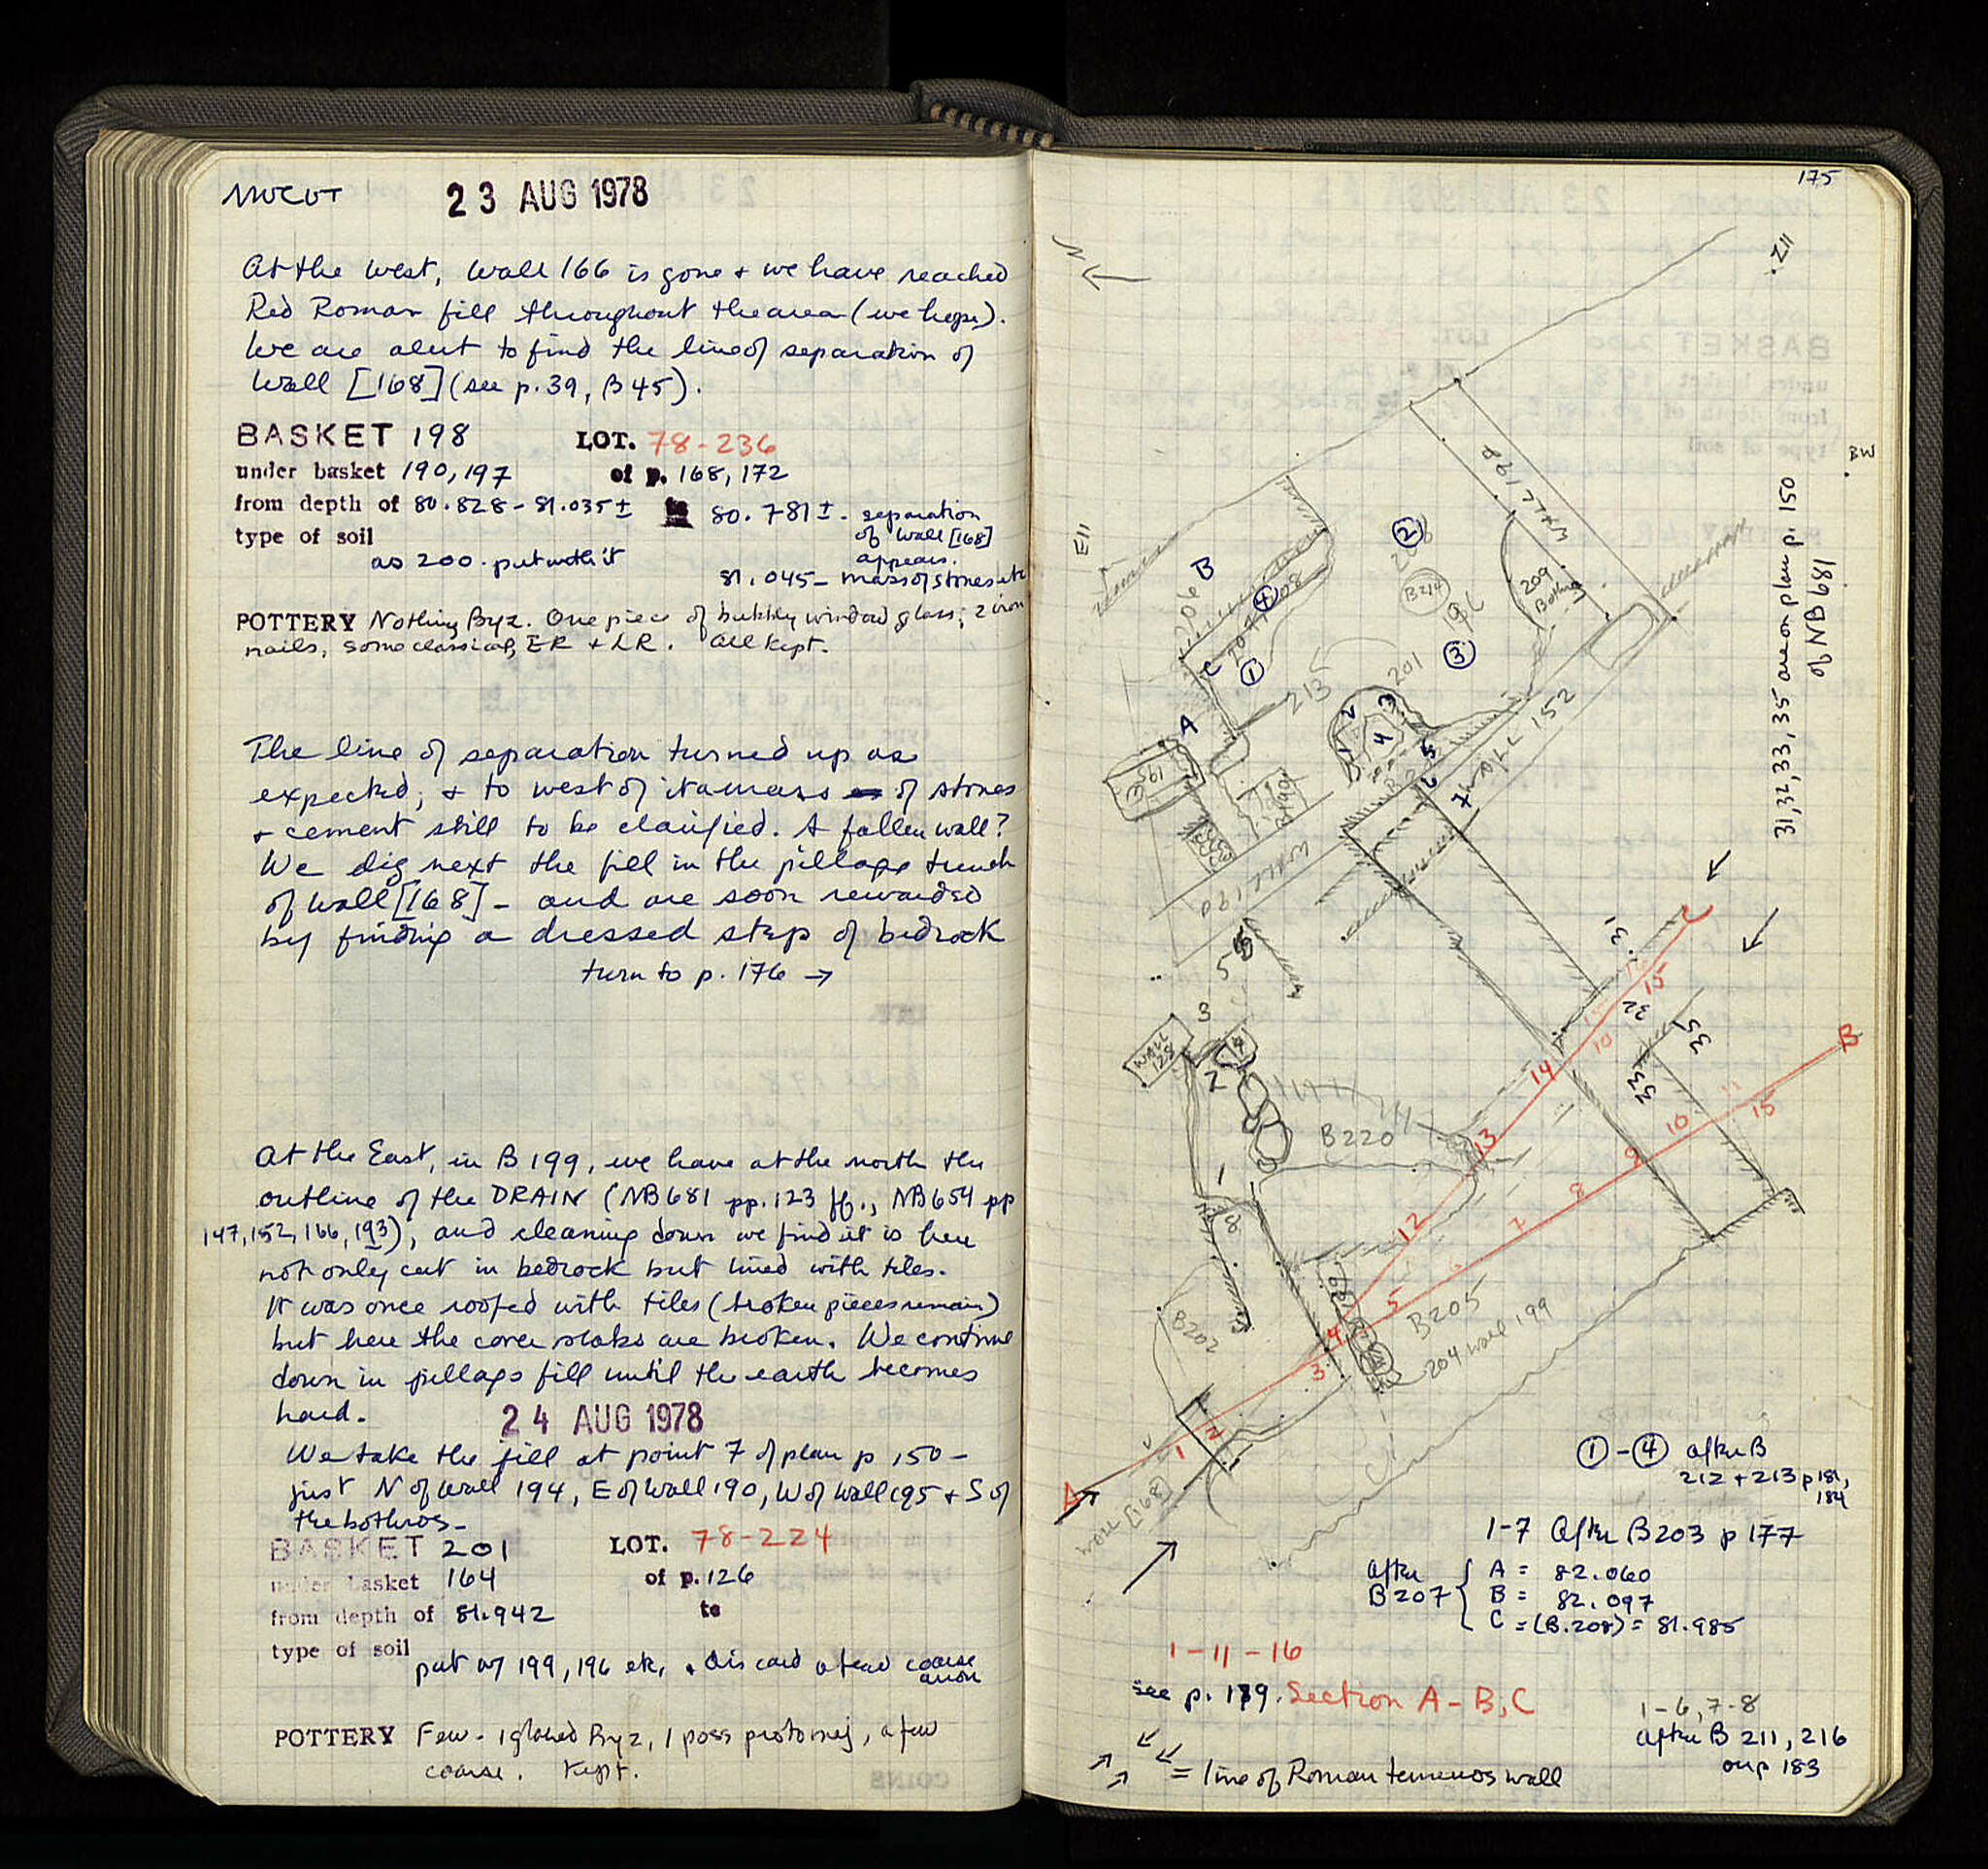 23 AUG 1978
At the west, Wall 166 is gone + we have reached
Red Roman fill throughout the area (we hope).
We are alert to find the line of separation of
Wall [168] (see p. 39, B 45).
BASKET 198 LOT. 78-236
under basket 190, 197 of p. 168, 172
from depth of 80.828 - 81.035 ± to 80.781 ± - separation
of wall [168]
appears.
type of soil
as 200. put with it
81.045 - mass of stones etc
POTTERY Nothing Byz. One piece of bubbly window glass; 2 iron
nails, some classical, ER + LR. All kept.
The line of separation turned up as
expected; + to west of it a mass of stones
+ cement still to be clarified. A fallen wall?
We dig next the fill in the pillage trench
of wall [168] - and are soon rewarded
by finding a dressed step of bedrock
turn to p. 176 →
At the East, in B 199, we have at the north the
outline of the DRAIN (NB 681 pp. 123 ff., NB 654 pp
147, 152, 166, 193), and cleaning down we find it is here
not only cut in bedrock but lined with tiles.
It was once roofed with tiles (broken pieces remain)
but here the cover slabs are broken. We continue
down in pillage fill until the earth becomes
hard.
24 AUG 1978
We take the fill at point 7 of plan p 150 -
just N of wall 194, E of Wall 190, W of Wall 195 + S of
the bothros -
BASKET 201 LOT. 78-224
under basket 164 of p. 126
from depth of 81.942 to
type of soil
put w/ 199, 196 etc. + discard a few coarse
POTTERY Few - 1 glazed Byz, 1 poss protomaj, a few
coarse. Kept.
175
N
Z11
E11
BW
31, 32, 33, 35 are on plan p. 150
of NB 681
WALL 198
209
Bothros
B
206
4
208
207
C
1
2
B214
196
3
201
213
A
195
2
3
1
4
5
6
7
WALL 152
WALL 190
5
3
WALL
128
4
2
1
8
B220
B202
B205
204 Wall 199
Wall [168]
31
32
33
35
C
B
A
1
2
3
4
5
6
7
8
9
10
11
15
12
13
14
10
15
1 - 4 after B
212 + 213 p 181,
184
1-7 After B203 p 177
After B207 { A = 82.060
B = 82.097
C = (B.208) = 81.985
1 - 11 - 16
see p. 179. Section A - B, C
1-6, 7-8
after B 211, 216
on p 183
= line of Roman temenos wall